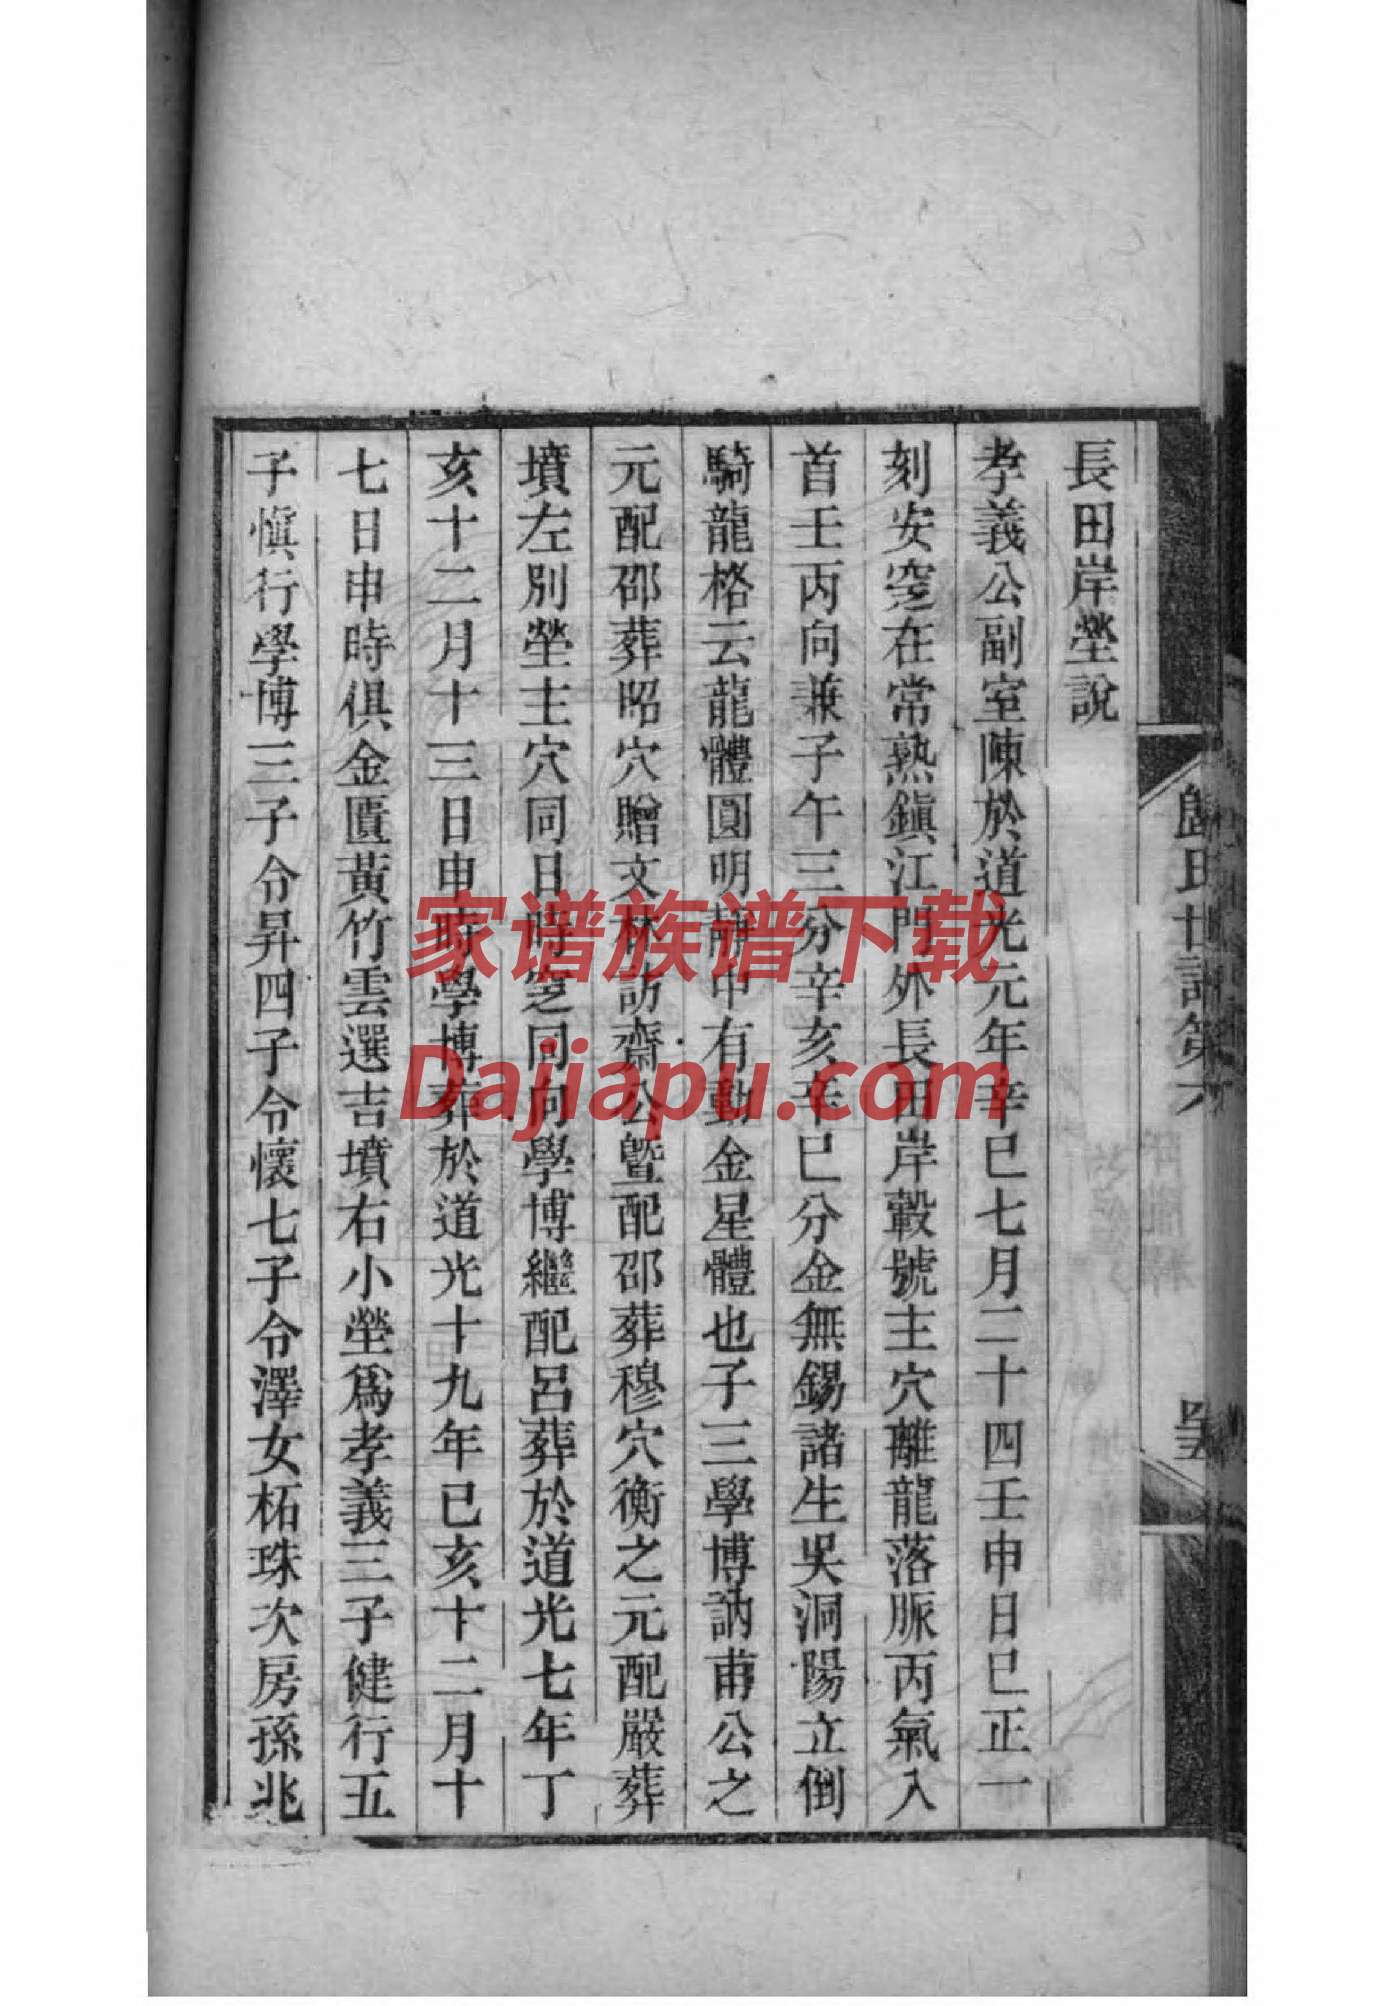 長田岸塋說
孝義公副室陳於道光元年辛巳七月二十四壬申日巳正一
刻安窆在常熟鎭江門外長田岸轂號主穴離龍落脈丙氣入
首壬丙向兼子午三分辛亥辛巳分金無錫諸生吳洞陽立倒
騎龍格云龍體圓明靜中有動金星體也子三學博訥甫公之
元配邵葬昭穴贈文林訪齋公曁配邵葬穆穴衡之元配嚴葬
墳左別塋主穴同日時窆同向學博繼配呂葬於道光七年丁
亥十二月十三日申時學博葬於道光十九年己亥十二月十
七日申時俱金匱黃竹雲選吉墳右小塋爲孝義三子健行五
子愼行學博三子令昇四子令懷七子令澤女柘珠次房孫兆
歸氏世譜第六
家谱族谱下载
Dajiapu.com